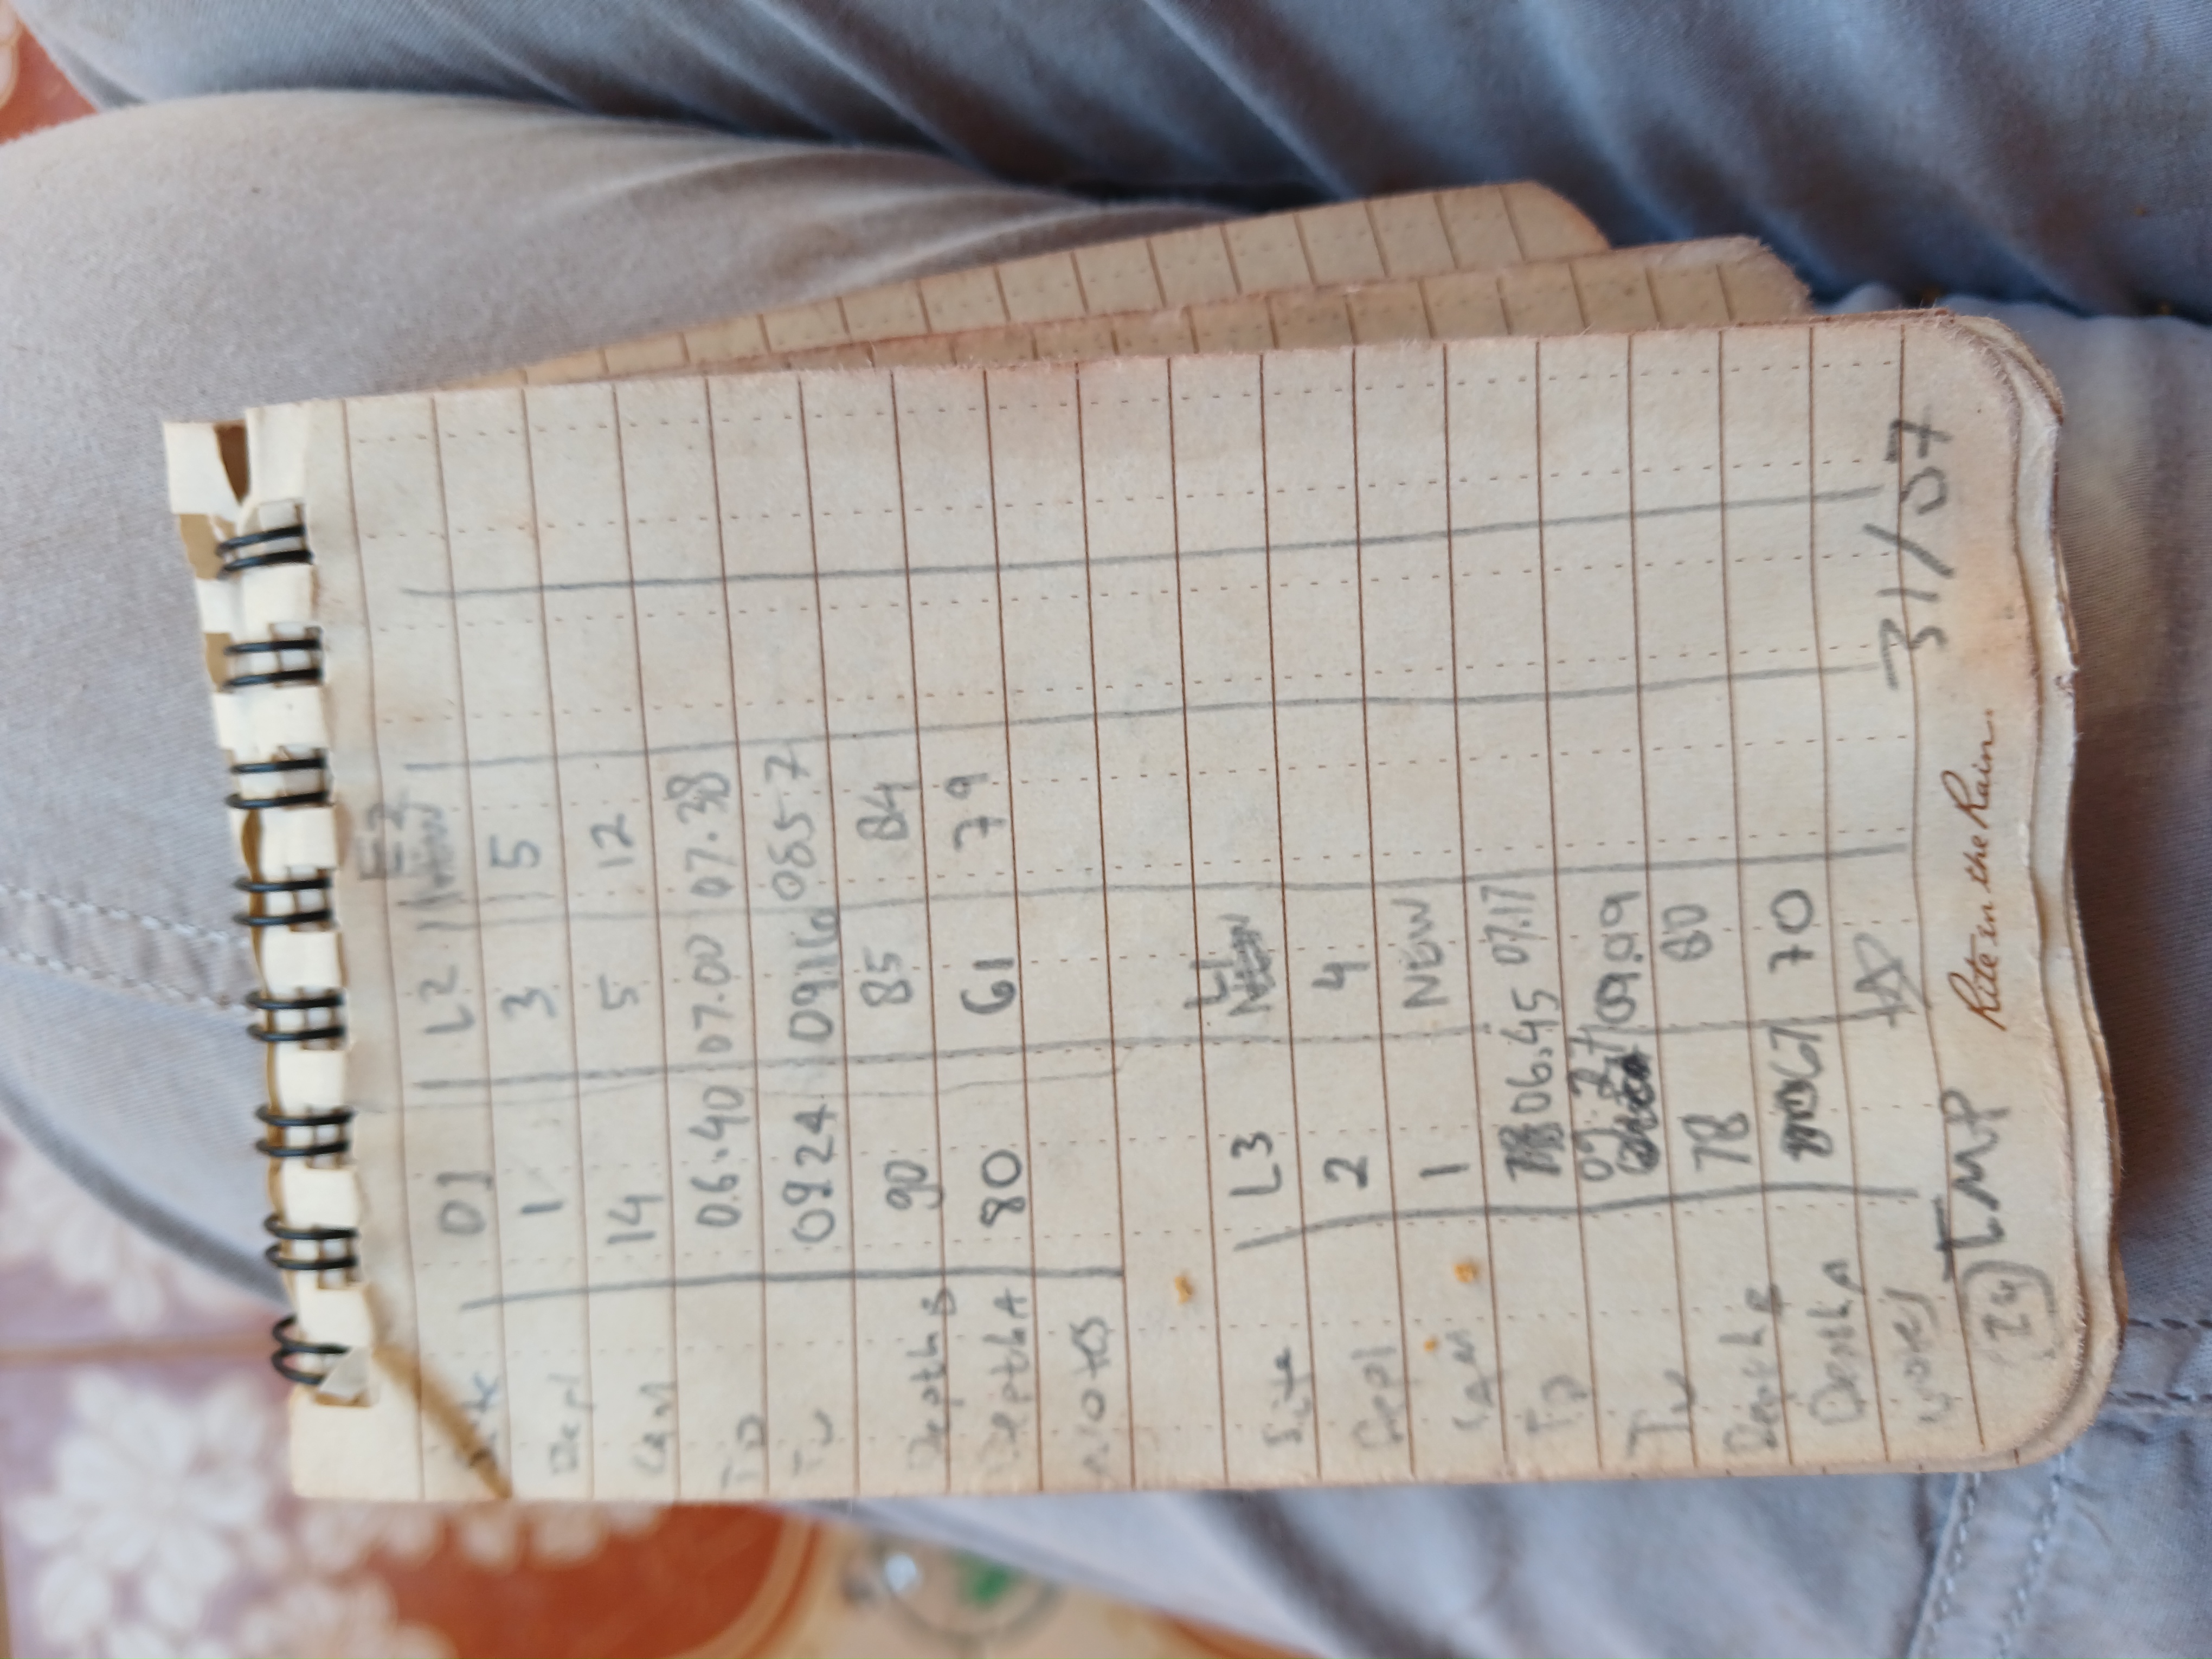 E2
Site D1 L2
Depl 1 3 5
CAM 14 5 12
TD 06.40 07.00 07.38
TU 0924 0916 0857
Depth B 90 85 84
Depth A 80 61 79
Notes
L1
Site L3 NEW
Depl 2 4
CAM 1 NEW
TD 06.45 07.17
09.27
TU 09.09
Depth B 78 80
Depth A 67 70
Notes
31/07
24 TMP Rite in the Rain.